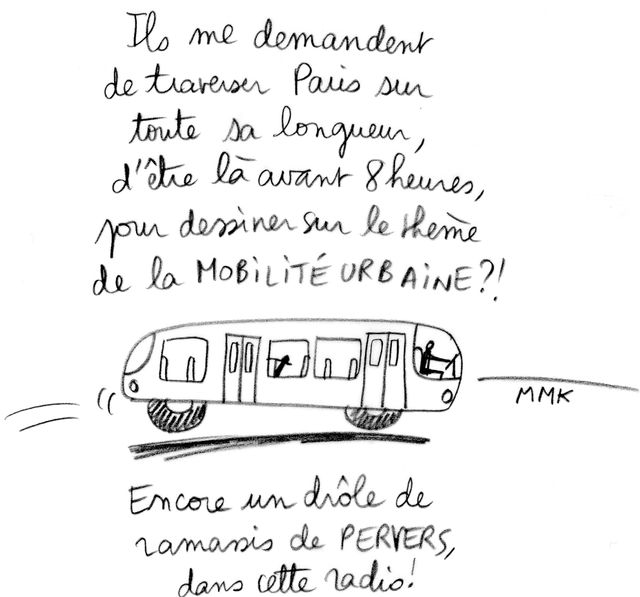 Ils me demandent
de traverser Paris sur
toute sa longueur,
d'être là avant 8 heures,
pour dessiner sur le thème
de la MOBILITÉ URBAINE?!
MMK
Encore un drôle de
ramassis de PERVERS,
dans cette radio!